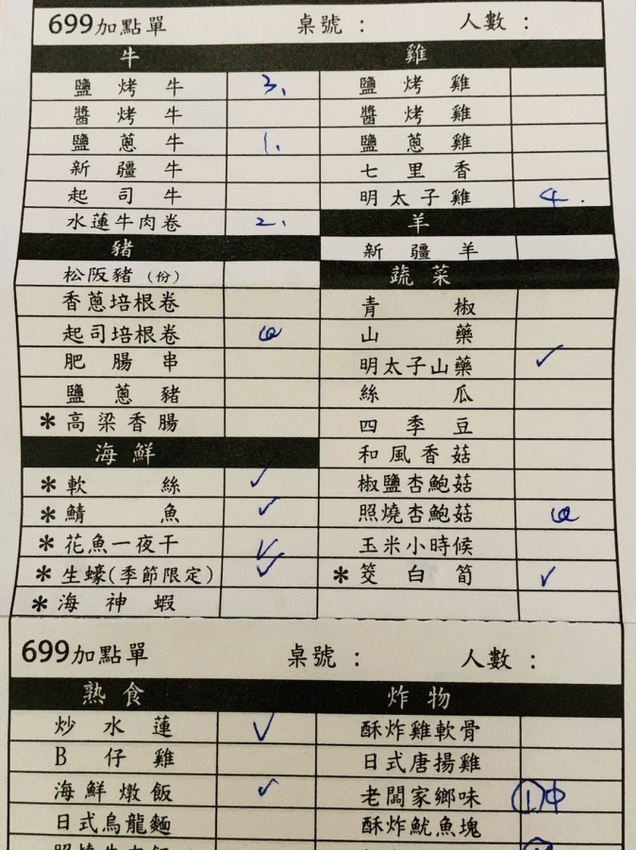 699加點單 桌號： 人數：
牛 雞
鹽烤牛 3. 鹽烤雞
醬烤牛 醬烤雞
鹽蔥牛 1. 鹽蔥雞
新疆牛 七里香
起司牛 明太子雞 4.
水蓮牛肉卷 2. 羊
豬 新疆羊
松阪豬（份） 蔬菜
香蔥培根卷 青椒
起司培根卷 山藥
肥腸串 明太子山藥 ✓
鹽蔥豬 絲瓜
*高梁香腸 四季豆
海鮮 和風香菇
*軟絲 ✓ 椒鹽杏鮑菇
*鯖魚 ✓ 照燒杏鮑菇
*花魚一夜干 ✓ 玉米小時候
*生蠔(季節限定) ✓ *筊白筍 ✓
*海神蝦
699加點單 桌號： 人數：
熟食 炸物
炒水蓮 ✓ 酥炸雞軟骨
B仔雞 日式唐揚雞
海鮮燉飯 ✓ 老闆家鄉味 ①中
日式烏龍麵 酥炸魷魚塊